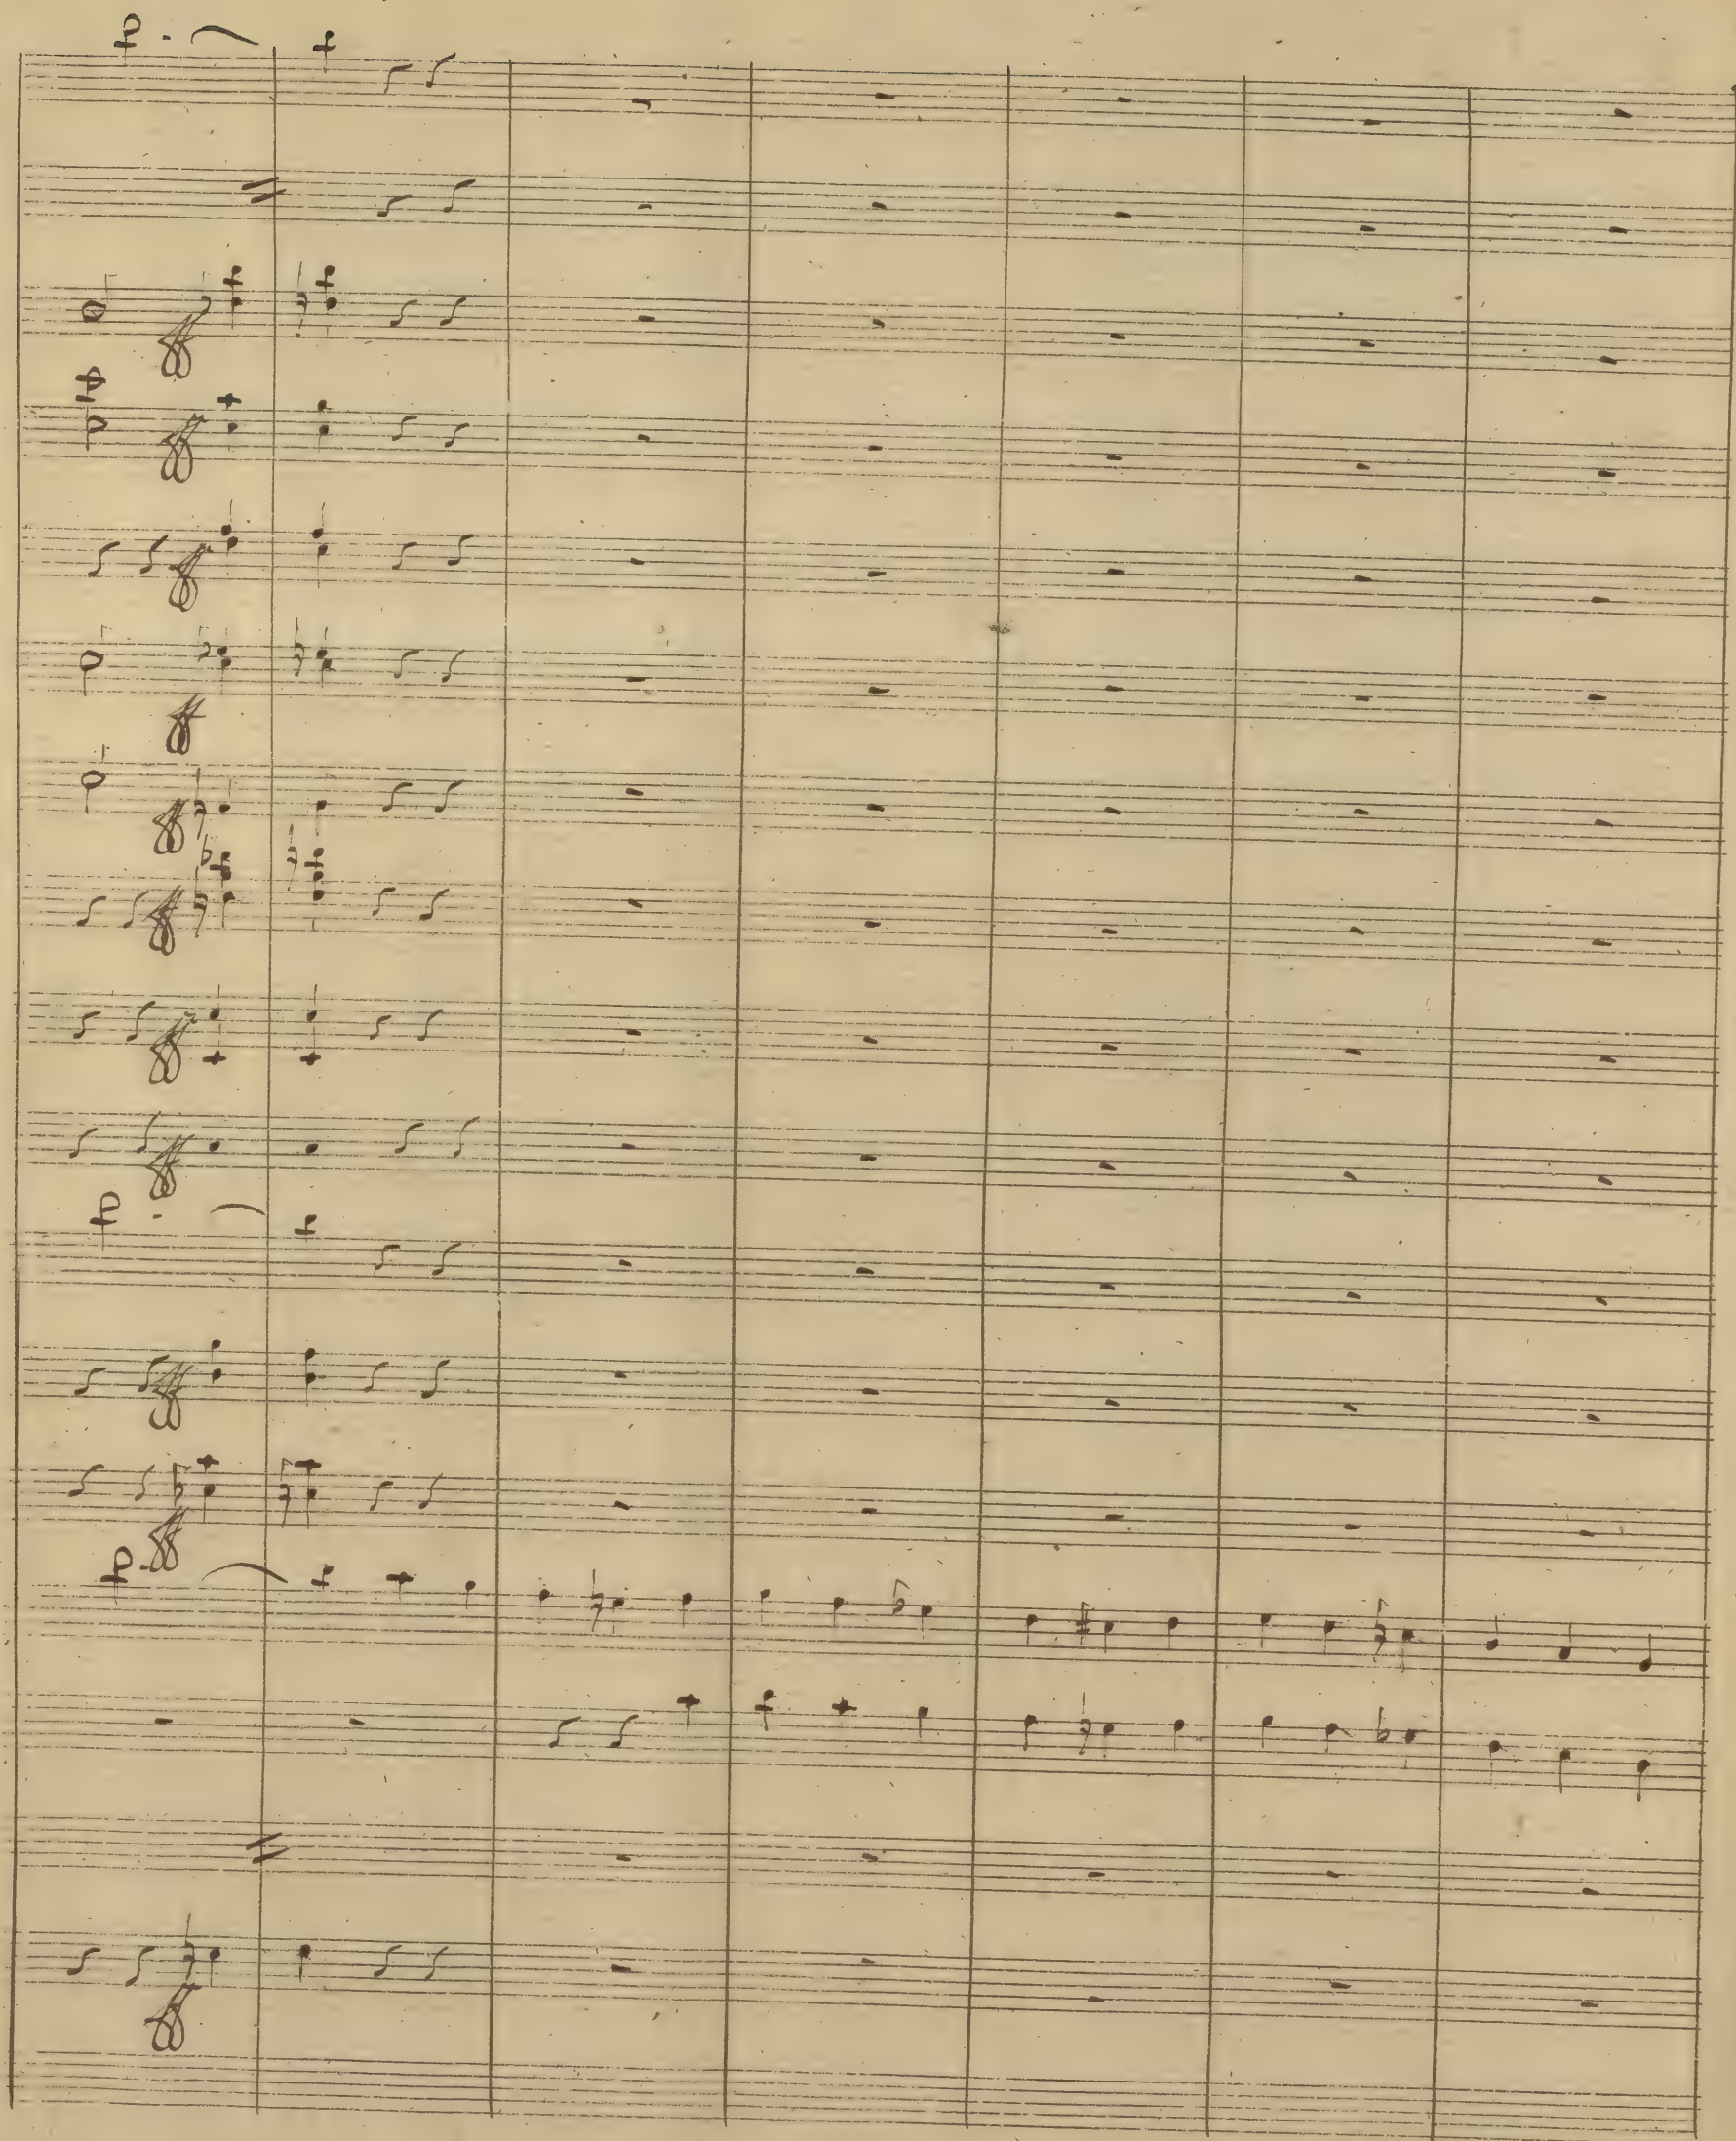 ff
ff
ff
ff
ff
ff
ff
ff
ff
ff
ff